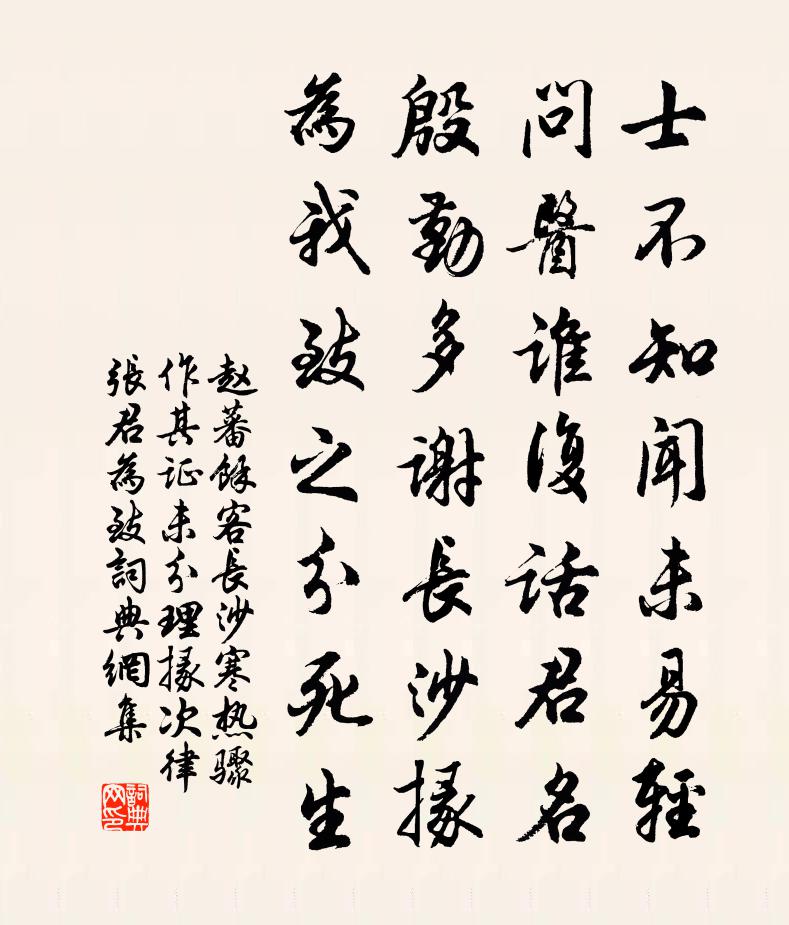 士不知聞未易輕
問醫誰復话君名
殷勤多謝長沙掾
為我致之分死生
赵蕃餘客長沙寒热驟
作其证未分理掾次律
張君為致詞典網集
詞典网印